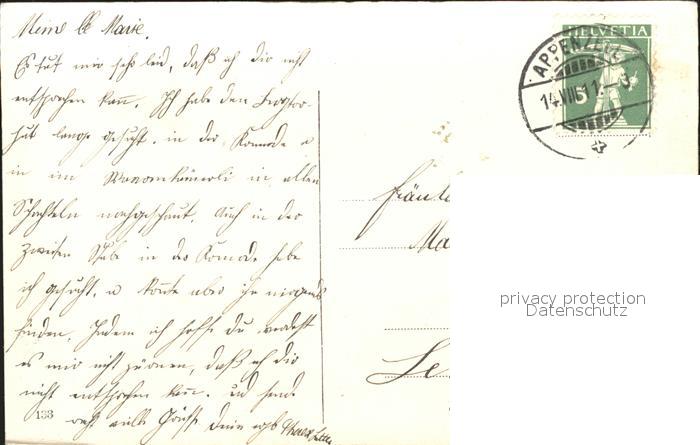 Meine lb Marie.
Es tut mir sehr leid, daß ich dir nicht
entsprechen kann. Ich habe den
hut lange gesucht. in der Komode u
in im in allen
Schachteln nachgeschaut. Auch in der
zweiten Stube in der Komode habe
ich gesucht, u konnte aber ihn nirgends
finden. Indem ich hoffe du werdest
es mir nicht zürnen, daß ich dir
nicht entsprechen kann. und sende
recht viele Grüsse Dein
133
HELVETIA
5
APPENZELL
14.VII.11.-3
Fräule
Ma
Le
privacy protection
Datenschutz